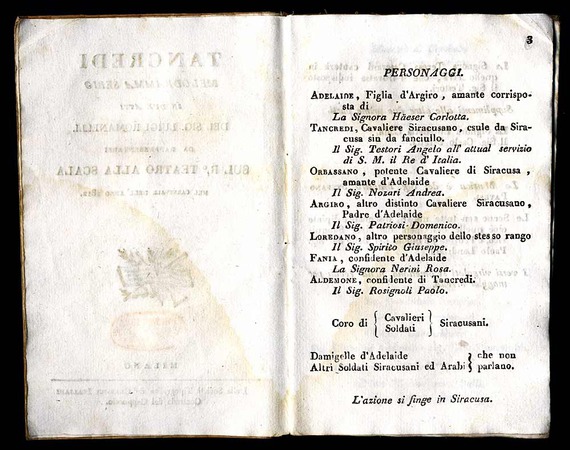 3
PERSONAGGI.
ADELAIDE, Figlia d'Argiro, amante corrispo-
sta di
La Signora Häeser Carlotta.
TANCREDI, Cavaliere Siracusano, esule da Sira-
cusa sin da fanciullo.
Il Sig. Testori Angelo all' attual servizio
di S. M. il Re d' Italia.
ORBASSANO, potente Cavaliere di Siracusa,
amante d'Adelaide
Il Sig. Nozari Andrea.
ARGIRO, altro distinto Cavaliere Siracusano,
Padre d'Adelaide
Il Sig. Patriosi Domenico.
LOREDANO, altro personaggio dello stesso rango
Il Sig. Spirito Giuseppe.
FANIA, confidente d'Adelaide
La Signora Nerini Rosa.
ALDEMONE, confidente di Tancredi.
Il Sig. Rosignoli Paolo.
Coro di { Cavalieri Soldati } Siracusani.
Damigelle d'Adelaide } che non
Altri Soldati Siracusani ed Arabi } parlano.
L'azione si finge in Siracusa.